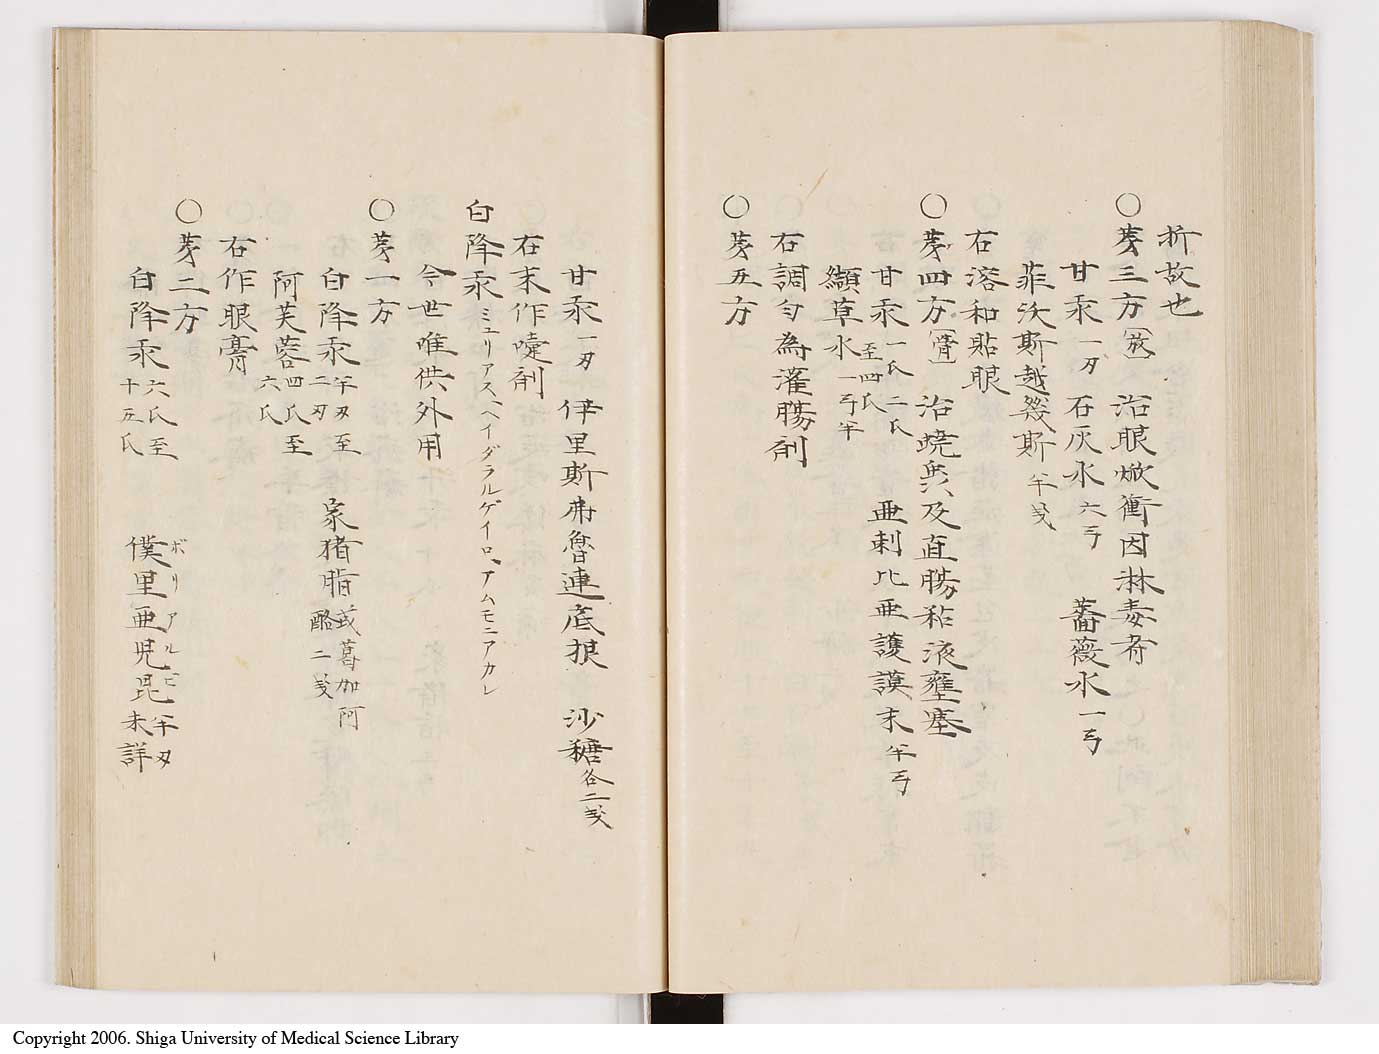 折故也
〇第三方 放 治眼焮衝因淋毒者
甘汞一刃 石灰水六丂 薔薇水一丂
菲沃斯越幾斯半戔
右溶和貼眼
〇第四方 治蟯䖝及直腸粘液壅塞
甘汞一氏二氏至四氏 亜刺比亜護謨末半丂
纈草水一丂半
右調匀為灌腸剤
〇第五方
甘汞一刃 伊里斯弗魯連底根 沙糖各二戔
右末作嚏剤
白降汞 ミュリアス、ヘイダラルゲイロ、アムモニアカレ
今世唯供外用
〇第一方
白降汞半刃至二刃 家猪脂或葛加阿酪二戔
阿芙蓉四氏至六氏
右作眼膏
〇第二方
白降汞六氏至十五氏 僕里亜児毘半刃未詳
ボリアルビ
Copyright 2006. Shiga University of Medical Science Library